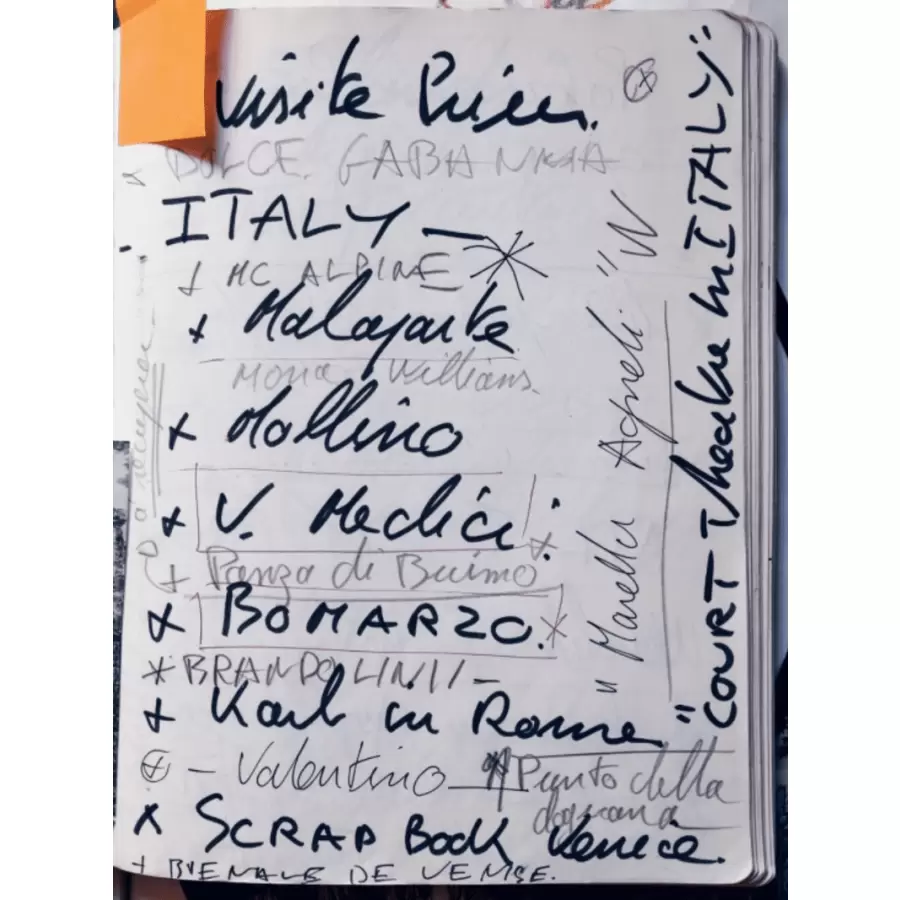 visite
DOLCE. GABANNA
ITALY — *
+ MC ALPINE
+ Malaparte
Mona Williams.
+ Mollino
+ V. Medici:
+ Panza di Buimo
+ BOMARZO.
* BRANDOLINII –
+ Karl in Rome
⊕ – Valentino — * Punto della
dogana
x SCRAP Book Venice.
+ BIENALE DE VENISE.
"Marella Agneli" W
"COURT Theatre in ITALY"